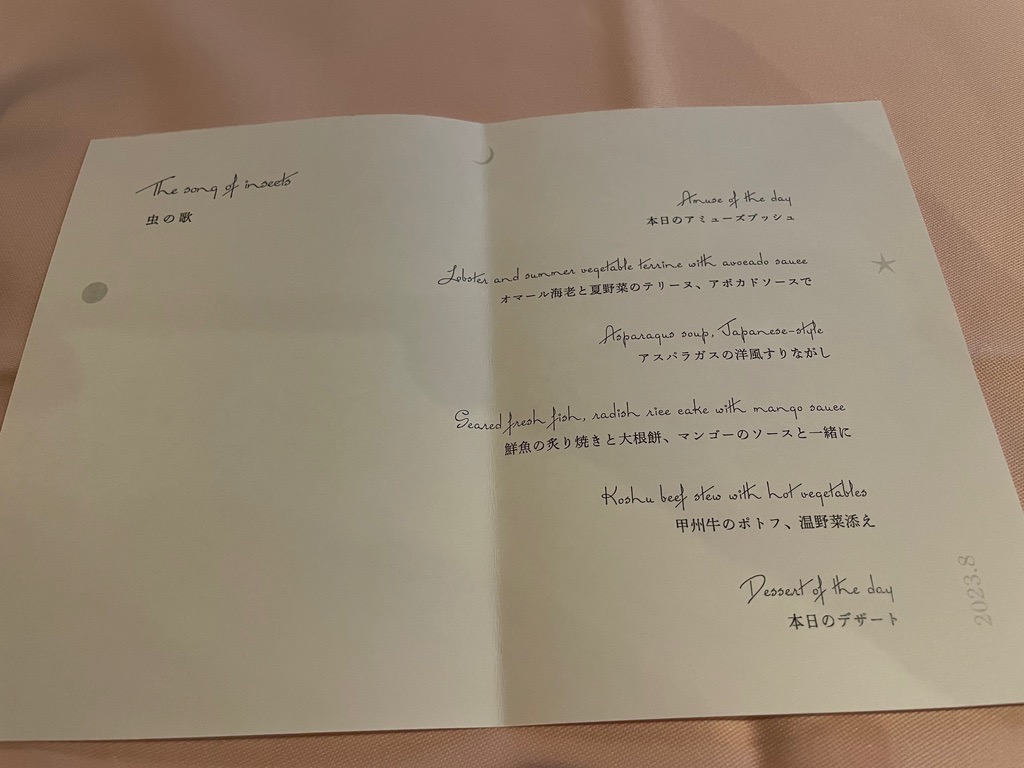 The song of insects
虫の歌
Amuse of the day
本日のアミューズブッシュ
Lobster and summer vegetable terrine with avocado sauce
オマール海老と夏野菜のテリーヌ、アボカドソースで
Asparagus soup, Japanese-style
アスパラガスの洋風すりながし
Seared fresh fish, radish rice cake with mango sauce
鮮魚の炙り焼きと大根餅、マンゴーのソースと一緒に
Koshu beef stew with hot vegetables
甲州牛のポトフ、温野菜添え
Dessert of the day
本日のデザート
2023.8